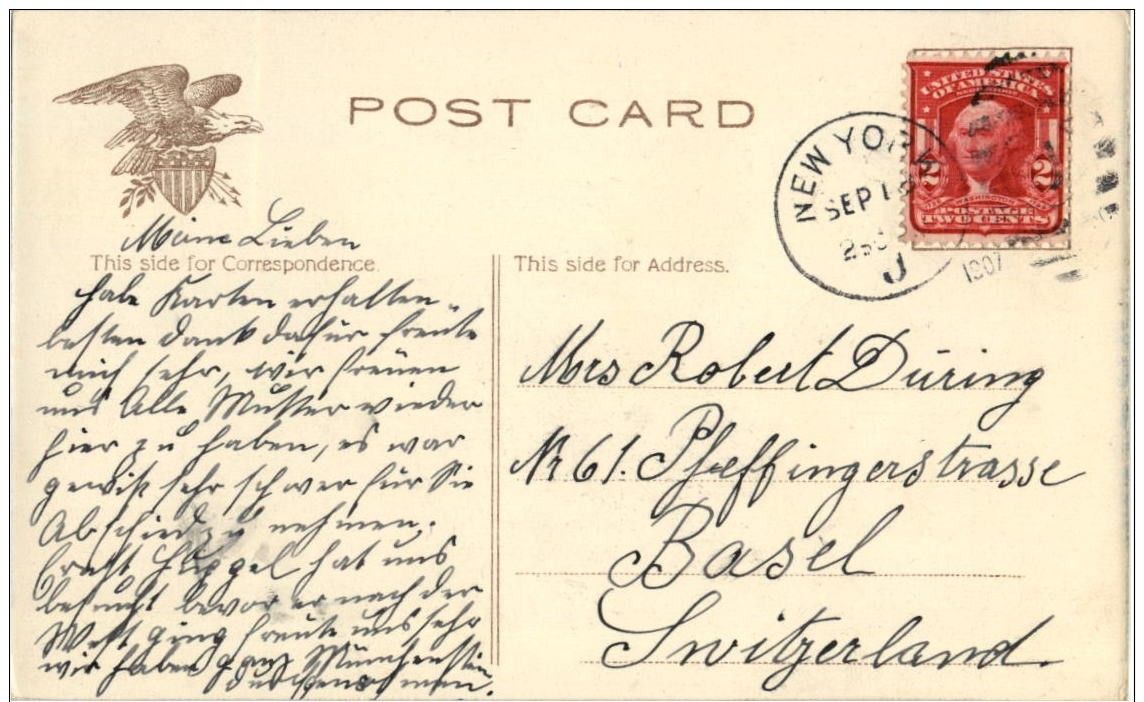 POST CARD
UNITED STATES
OF AMERICA
2 2
WASHINGTON
POSTAGE
TWO CENTS
NEW YORK
SEP 18
J
1907
Meine Lieben
This side for Correspondence.
habe Karten erhalten,
besten Dank dafür freute
mich sehr, wir freuen
uns Alle Mutter wieder
hier zu haben, es war
gewiß sehr schwer für Sie
Abschied zu nehmen.
hat uns
besucht bevor er nach der
West ging freute uns sehr
wir haben ganz Münchenstein
This side for Address.
Mrs Robert Düring
Nr 61. Pfeffingerstrasse
Basel
Switzerland.